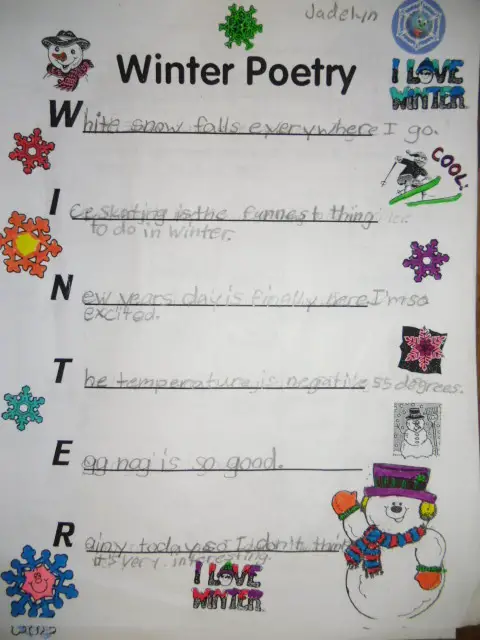 Jadelyn
I LOVE
WINTER
Winter Poetry
White snow falls everywhere I go.
COOL!
Ice skating is the funnest thing
to do in winter.
New years day is finally here I'm so
excited.
The temperature is negative 55 degrees.
Egg nog is so good.
Rainy today so I don't think
it's very interesting.
I LOVE
WINTER